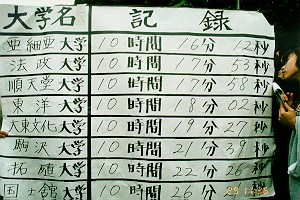 大学名 記録
亜細亜大学 10時間 16分 12秒
法政大学 10時間 17分 53秒
順天堂大学 10時間 17分 58秒
東洋大学 10時間 18分 02秒
大東文化大学 10時間 19分 27秒
駒沢大学 10時間 21分 39秒
拓殖大学 10時間 22分 26秒
国士舘大学 10時間 26分 秒